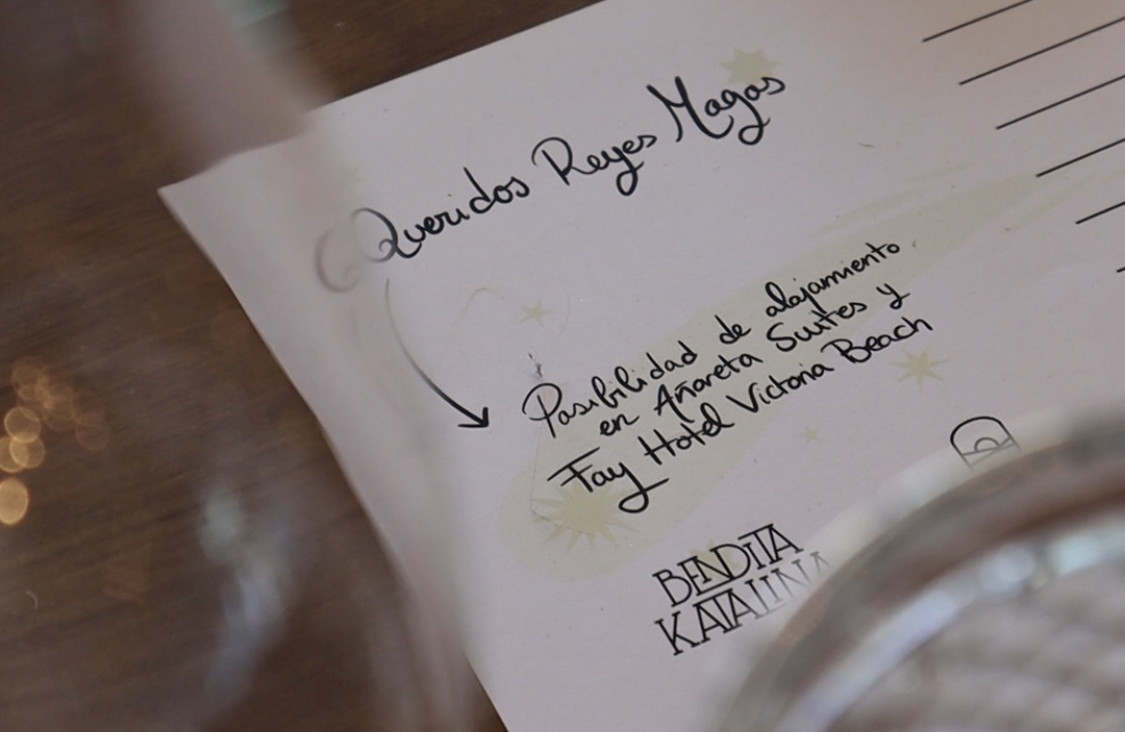 Queridos Reyes Magos
Posibilidad de alojamiento
en Añoreta Suites y
Fay Hotel Victoria Beach
BENDITA
KATALINA